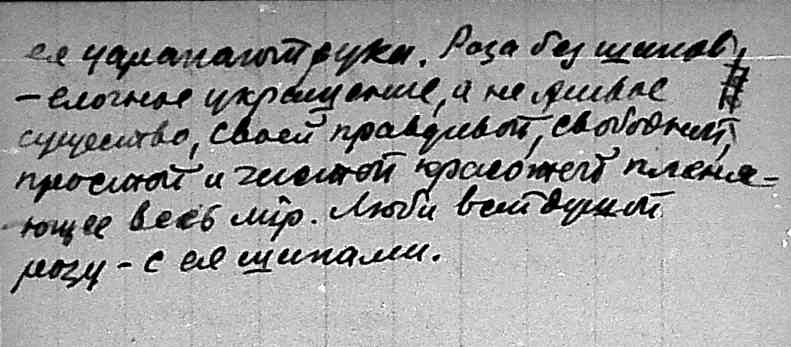 ея царапают руки. Роза без шипов,
– елочное украшение, а не живое
существо, своей правдивой, свободной,
простой и чистой красотой пленя-
ющее весь мiр. Люби всей душой
розу – с ея шипами.